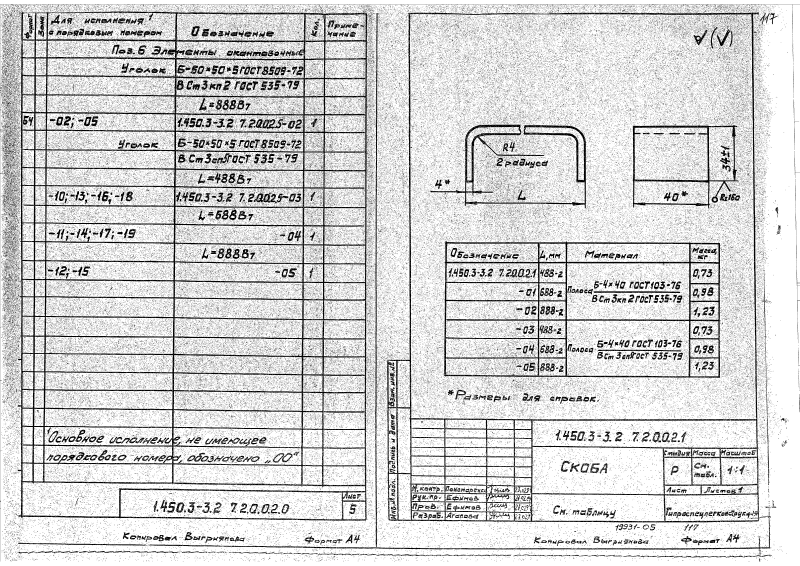 117
Формат
Зона
Для исполнения¹ с порядковым номером
Обозначение
Кол.
Примечание
Поз.6 Элементы окантовочные
Уголок Б-50×50×5 ГОСТ 8509-72
В Ст3кп2 ГОСТ 535-79
L=888Вт
БЧ -02; -05 1.450.3-3.2 7.2.0.0.2.5-02 1
Уголок Б-50×50×5 ГОСТ 8509-72
В Ст3сп5 ГОСТ 535-79
L=488Вт
-10;-13;-16;-18 1.450.3-3.2 7.2.0.0.2.5-03 1
L=688Вт
-11;-14;-17;-19 -04 1
L=888Вт
-12;-15 -05 1
¹Основное исполнение, не имеющее
порядкового номера, обозначено „00"
1.450.3-3.2 7.2.0.0.2.0
Лист
5
Копировал Выгриянова Формат А4
√(√)
R4
2 радиуса
4*
L
34±1
40*
Rz160
Обозначение L,мм Материал Масса, кг
1.450.3-3.2 7.2.0.0.2.1 488-2 0,73
-01 688-2 Полоса Б-4×40 ГОСТ 103-76 0,98
В Ст3кп2 ГОСТ 535-79
-02 888-2 1,23
-03 488-2 0,73
-04 688-2 Полоса Б-4×40 ГОСТ 103-76 0,98
В Ст3сп5 ГОСТ 535-79
-05 888-2 1,23
*Размеры для справок.
Инв.№ подл. Подпись и дата Взам. инв.№
1.450.3-3.2 7.2.0.0.2.1
СКОБА
Стадия Масса Масштаб
Р См. табл. 1:1
Лист Листов 1
Н.контр.
Рук.пр. Ефимов
Пров. Ефимов
Разраб. Агапова
См. таблицу
19931-05 117
Копировал Выгриянова Формат А4